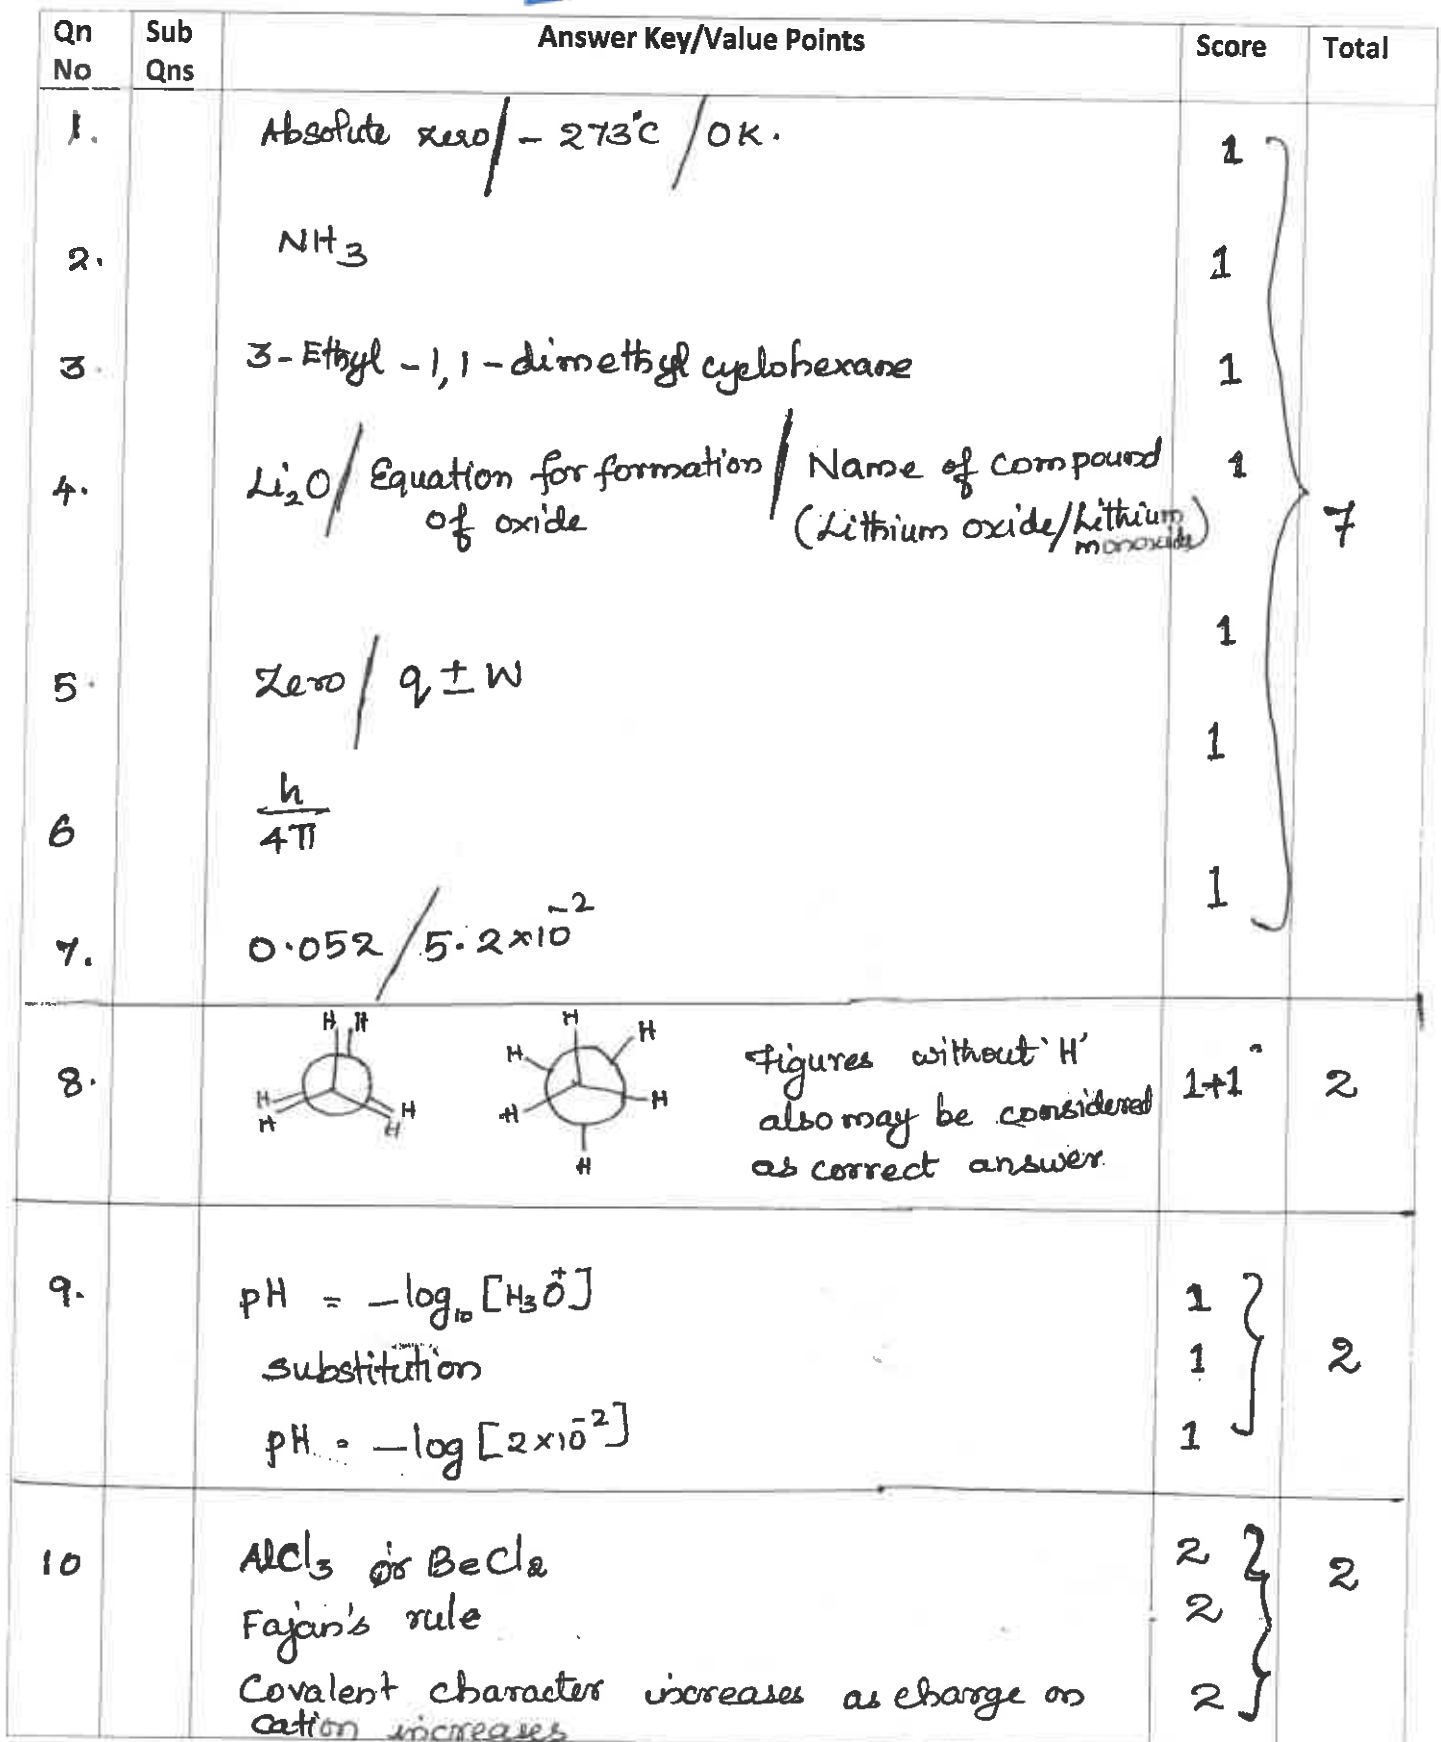 Qn No Sub Qns Answer Key/Value Points Score Total
1. Absolute zero / - 273°C / OK. 1
2. NH3 1
3. 3-Ethyl -1,1-dimethyl cyclohexane 1
4. Li2O / Equation for formation of oxide / Name of compound (Lithium oxide/Lithium monoxide) 1
7
5. Zero / q ± W 1
6 h/4π 1
7. 0.052 / 5.2×10^-2 1
8. H H H H H H H H H H H H Figures without 'H' also may be considered as correct answer. 1+1 2
9. pH = -log10 [H3O+] 1
substitution 1 2
pH = -log [2×10^-2] 1
10 AlCl3 or BeCl2 2 2
Fajan's rule 2
Covalent character increases as charge on cation increases 2